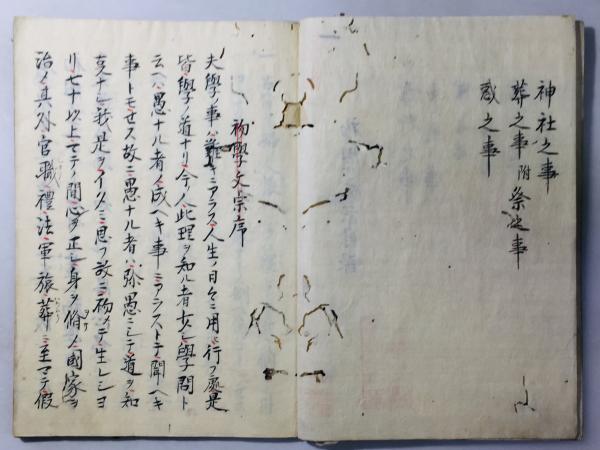 神社之事
葬之事 附 祭之事
蔵之事
初學文宗序
夫學ノ事ハ難キニアラス人生ノ日々ニ用ヒ行フ處是
皆學ノ道ナリ今ノ人此理ヲ知ル者少シ學問ト
云ヘハ愚ナル者ノ成ヘキ事ニアラストテ聞ヘキ
事トモセス故ニ愚ナル者ハ弥愚ニシテ道ヲ知
ナシ我是ヲイタミ思フ故ニ初メテ生レシヨ
リ七十以上マテノ間心ヲ正シ身ヲ脩メ國家ヲ
治メ其外官職禮法軍旅葬ニ至マテ假